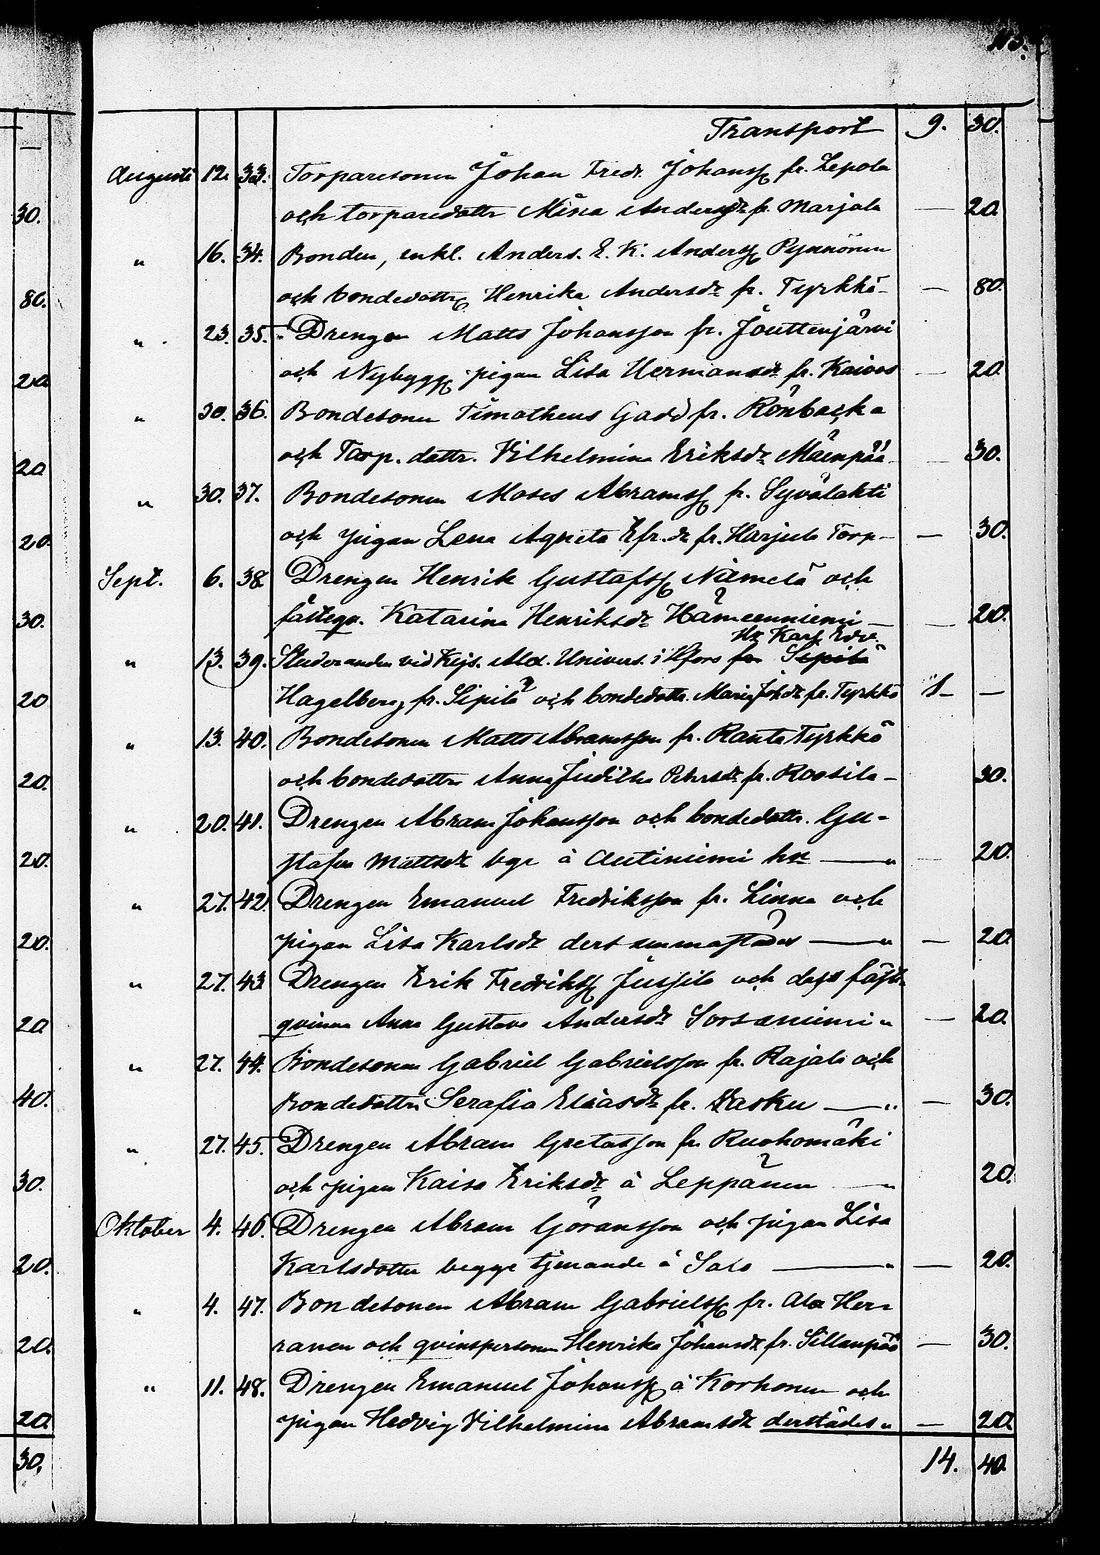 113.
Transport 9. 30.
Augusti 12. 33. Torparesonen Johan Fredr. Johanss. fr. Lepola
och torparedottr Mina Andersdr fr. Marjala — 20.
" 16. 34. Bonden, enkl. Anders. E. K. Anderss. Pynnönen
och bondedottr Henrika Andersdr fr. Tyrkkö — 80.
" 23. 35. Drengen Matts Johansson fr. Jouttenjärvi
och Nybygg. pigan Lisa Hermansdr fr. Kaivos — 20.
" 30. 36. Bondesonen Timotheus Gadd fr. Rönbacka
och Torp. dottr. Vilhelmina Eriksdr Mäenpää — 30.
" 30. 37. Bondesonen Moses Abramss. fr. Syvälahti
och pigan Lena Agneta Efr.dr fr. Harjula Torp — 30.
Sept. 6. 38. Drengen Henrik Gustafss. Niemelä och
fästeqv. Katarina Henriksdr Hämeenniemi — 20.
Hr Karl Edv.
" 13. 39. Studeranden vid Kejs. Alex. Univers. i Hfors fr. Sipilä
Hagelberg fr. Sipilä och bondedottr. Maria Joh.dr fr. Tyrkkö 1 — —
" 13. 40. Bondesonen Matts Abramsson fr. Ranta Tyrkkö
och bondedottren Anna Juditha Petersdr fr. Roosila — 30.
" 20. 41. Drengen Abram Johansson och bondedottr. Gu-
stafva Mattsdr bge å Autiniemi hn — " — 20.
" 27. 42. Drengen Emanuel Fredriksson fr. Linna och
pigan Lisa Karlsdr dersammastädes — " — 20.
" 27. 43. Drengen Erik Fredrikss. Jussila och dess fäst-
qvinna Anna Gustava Andersdr Sorsaniemi " — 20.
" 27. 44. Bondesonen Gabriel Gabrielsson fr. Rajala och
Bondedottren Serafia Eliasdr fr. Kasku — " — 30.
" 27. 45. Drengen Abram Gretasson fr. Ruohomäki
och pigan Kaisa Eriksdr å Leppänen — 20.
Oktober 4. 46. Drengen Abram Göransson och pigan Lisa
Karlsdotter begge tjenande å Salo — " — 20.
" 4. 47. Bondesonen Abram Gabrielss. fr. Ala Her-
ranen och qvinspersonen Henrika Johansdr fr. Sillanpää — 30.
" 11. 48. Drengen Emanuel Johanss. å Korhonen och
pigan Hedvig Vilhelmina Abramsdr derstädes " — 20.
14. 40.
30.
80.
20.
20
20.
30.
20
20.
20.
20.
20
40.
30.
20.
20.
20.
30.